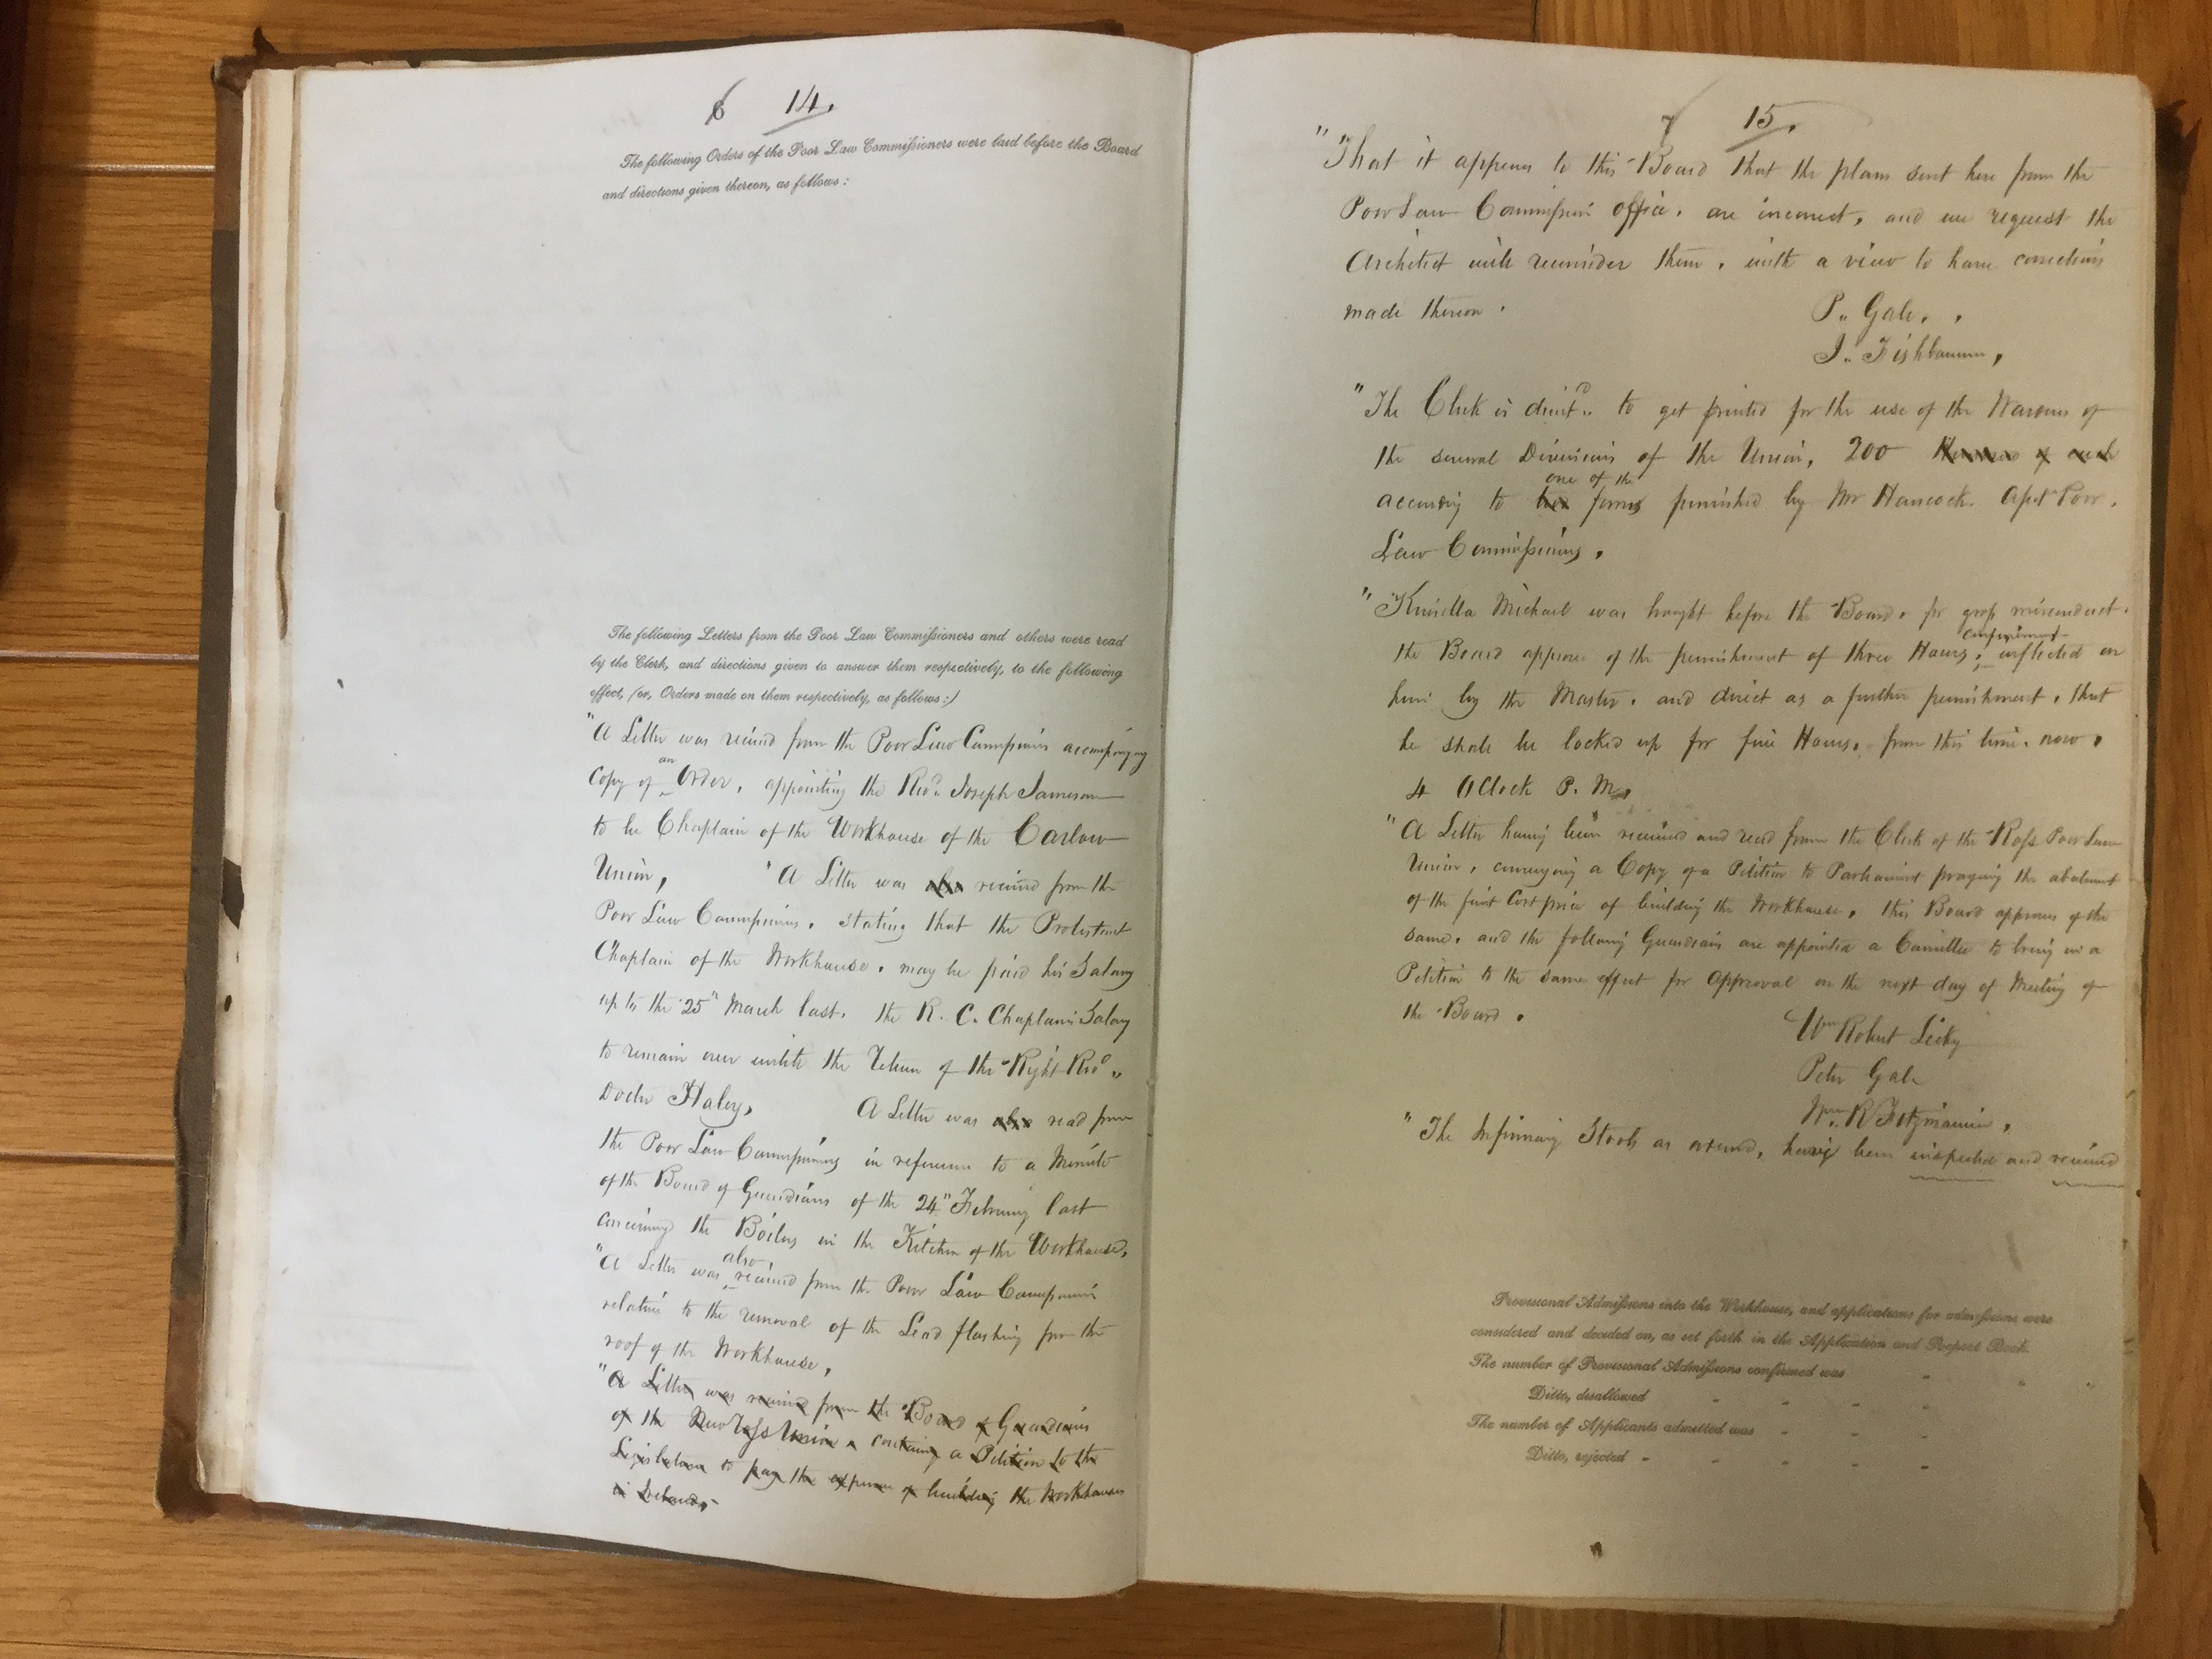 6 14.
The following Orders of the Poor Law Commissioners were laid before the Board
and directions given thereon, as follows:
The following Letters from the Poor Law Commissioners and others were read
by the Clerk, and directions given to answer them respectively, to the following
effect, (or, Orders made on them respectively, as follows:)
"A Letter was received from the Poor Law Commissioners accompanying
Copy of an Order, appointing the Revd. Joseph Jameson
to be Chaplain of the Workhouse of the Carlow
Union, "A Letter was also received from the
Poor Law Commissioners, stating that the Protestant
Chaplain of the Workhouse, may be paid his Salary
up to the 25" March last, the R. C. Chaplains Salary
to remain over untill the Return of the Right Revd.
Doctr Haley, A Letter was also read from
the Poor Law Commissioners in reference to a Minute
of the Board of Guardians of the 24" February last
concerning the Boilers in the Kitchen of the Workhouse,
"A Letter was also received from the Poor Law Commissioners
relative to the removal of the Lead flashing from the
roof of the Workhouse,
"A Letter was received from the Board of Guardians
of the New Ross Union, containing a Petition to the
Legislature to pay the expense of building the Workhouses
in Ireland,
7 15.
"That it appears to this Board that the plans sent here from the
Poor Law Commission office, are incorrect, and we request the
Architect will reconsider them, with a view to have corrections
made thereon.
P. Gale,
J. Fishbourne,
"The Clerk is directd. to get printed for the use of the Wardens of
the several Divisions of the Union, 200 of each
according to one of the forms furnished by Mr Hancock Asst Poor
Law Commissioners,
"Kinsella Michael was brought before the Board, for gross misconduct.
the Board approve of the punishment of three Hours, confinement inflicted on
him by the Master, and direct as a further punishment, that
he shall be locked up for five Hours, from this time, now,
4 OClock P. M.
"A Letter having been received and read from the Clerk of the Ross Poor Law
Union, conveying a Copy of a Petition to Parliament praying the abatement
of the first Cost price of building the Workhouse, this Board approves of the
same, and the following Guardians are appointed a Committee to bring in a
Petition to the same effect for Approval on the next day of Meeting of
the Board.
Wm Robert Lecky
Peter Gale
Wm. R Fitzmaurice,
"The Infirmary Stools as ordered, having been inspected and received
Provisional Admissions into the Workhouse, and applications for admissions were
considered and decided on, as set forth in the Application and Report Book.
The number of Provisional Admissions confirmed was
Ditto, disallowed
The number of Applicants admitted was
Ditto, rejected